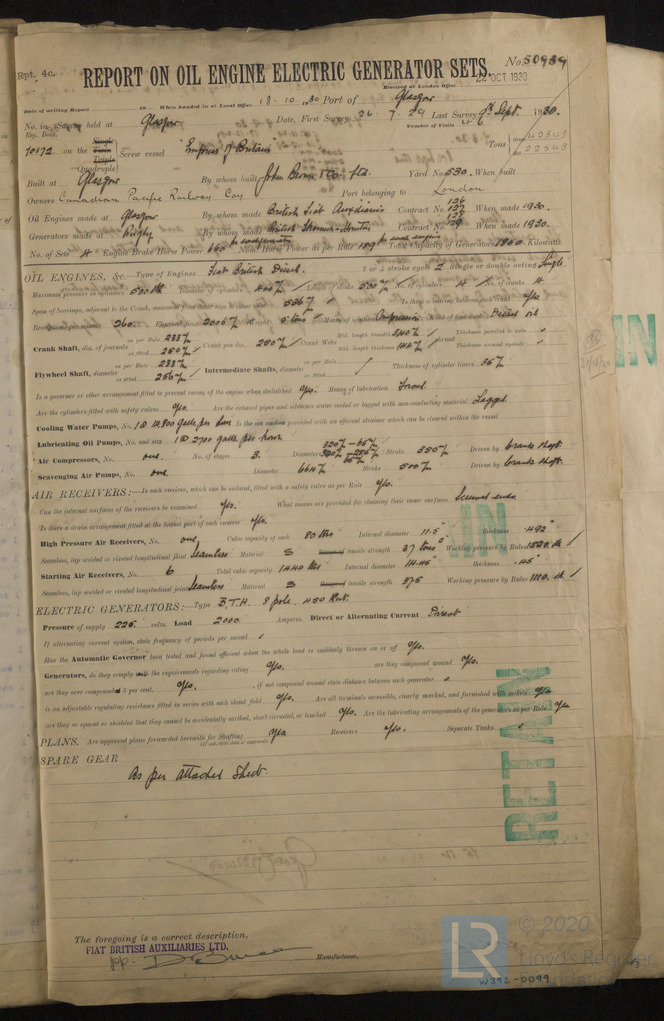 Rpt. 4c.
REPORT ON OIL ENGINE ELECTRIC GENERATOR SETS.
No. 50939
Received at London Office 22 OCT 1930
Date of writing Report 19 When handed in at Local Office 13.10.1930 Port of Glasgow
No. in Survey held at Glasgow Date, First Survey 26.7.29 Last Survey 9th Sept. 1930.
Reg. Book. Number of Visits
70172 on the Single Twin Triple Quadruple Screw vessel "Empress of Britain" Tons
Built at Glasgow By whom built John Brown & Co. Ltd. Yard No. 530. When built
Owners Canadian Pacific Railway Coy Port belonging to London
Oil Engines made at Glasgow By whom made British Fiat Auxiliaries Contract No. When made 1930.
Generators made at Rugby By whom made British Thomson-Houston Contract No. 129 When made 1930.
No. of Sets 4 Engine Brake Horse Power 660 Nom. Horse Power as per Rule 189 Total Capacity of Generators 1800 Kilowatts
OIL ENGINES, &c.—Type of Engines Fiat British Diesel. 2 or 4 stroke cycle 2 Single or double acting Single
Maximum pressure in cylinders 500 lb Diameter of cylinders No. of cylinders 4 No. of cranks 4
Span of bearings, adjacent to the Crank, measured from inner edge to inner edge 536 Is there a bearing between each crank Yes
Revolutions 260. Means of ignition Compression Kind of fuel used Diesel oil
Crank Shaft, dia. of journals as per Rule 237 as fitted 250 Crank pin dia. 250 Crank Webs Mid. length breadth 340 Mid. length thickness 144 Thickness parallel to axis Thickness around eyehole
Flywheel Shaft, diameter as per Rule 237 as fitted 250 Intermediate Shafts, diameter as per Rule as fitted Thickness of cylinder liners 35
Is a governor or other arrangement fitted to prevent racing of the engine when declutched Yes. Means of lubrication Forced
Are the cylinders fitted with safety valves Yes Are the exhaust pipes and silencers water cooled or lagged with non-conducting material Lagged.
Cooling Water Pumps, No. 1 @ 12,800 galls. per hour Is the sea suction provided with an efficient strainer which can be cleared within the vessel
Lubricating Oil Pumps, No. and size 1 @ 2700 galls. per hour
Air Compressors, No. one. No. of stages 3. Diameters Stroke 350 Driven by Crank shaft.
Scavenging Air Pumps, No. one Diameter 664 Stroke 500 Driven by Crank shaft.
AIR RECEIVERS:—Is each receiver, which can be isolated, fitted with a safety valve as per Rule Yes.
Can the internal surfaces of the receivers be examined Yes. What means are provided for cleaning their inner surfaces Screwed ends
Is there a drain arrangement fitted at the lowest part of each receiver Yes.
High Pressure Air Receivers, No. one Cubic capacity of each 80 ltrs Internal diameter 11.5" thickness .492"
Seamless, lap welded or riveted longitudinal joint Seamless Material S Range of tensile strength 37 tons Working pressure by Rules
Starting Air Receivers, No. 6 Total cubic capacity 1440 ltrs Internal diameter 14.45" thickness .45"
Seamless, lap welded or riveted longitudinal joint Seamless Material S Range of tensile strength Working pressure by Rules
ELECTRIC GENERATORS:—Type B.T.H. 8 pole. 450 Kwt.
Pressure of supply 225. volts. Load 2000. Amperes. Direct or Alternating Current Direct
If alternating current system, state frequency of periods per second
Has the Automatic Governor been tested and found efficient when the whole load is suddenly thrown on or off Yes.
Generators, do they comply with the requirements regarding rating Yes. are they compound wound Yes.
are they over compounded 5 per cent. Yes. , if not compound wound state distance between each generator
is an adjustable regulating resistance fitted in series with each shunt field Yes. Are all terminals accessible, clearly marked, and furnished with sockets Yes
are they so spaced or shielded that they cannot be accidentally earthed, short circuited, or touched Yes. Are the lubricating arrangements of the generators as per Rule Yes
PLANS. Are approved plans forwarded herewith for Shafting Yes Receivers Yes. Separate Tanks
(If not, state date of approval)
SPARE GEAR
As per attached Sheet.
RETAIN
The foregoing is a correct description,
FIAT BRITISH AUXILIARIES LTD.
pp.
Manufacturer.
LR
© 2020
Lloyd's Register
Foundation
W392-0099